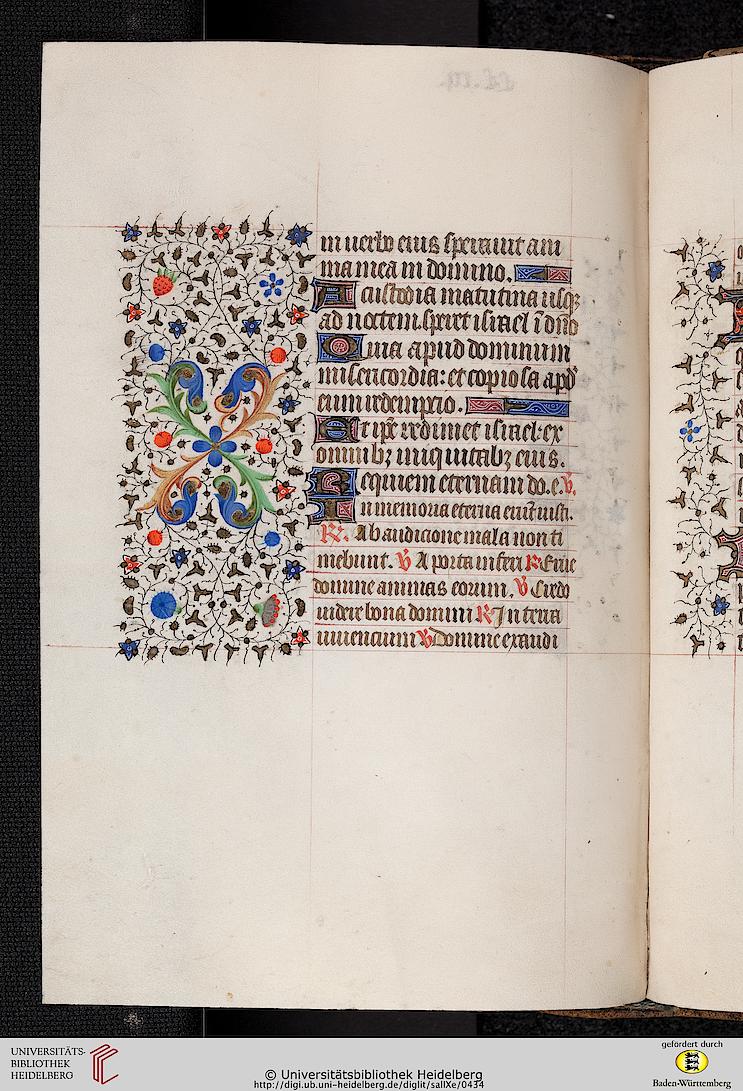 in uerbo eius sperauit ani
ma mea in domino.
A custodia matutina usq;
ad noctem. speret israel i dno
Quia apud dominum
misericordia: et copiosa apd
eum redempcio.
Et ipe redimet israel: ex
omnib; iniquitatib; eius.
Requiem eternam do. e. V.
In memoria eterna erut iusti.
R. Ab audicione mala non ti
mebunt. V A porta inferi R Erue
domine animas eorum. V Credo
uidere bona domini R In terra
uiuencium V Domine exaudi
UNIVERSITÄTS-
BIBLIOTHEK
HEIDELBERG
© Universitätsbibliothek Heidelberg
http://digi.ub.uni-heidelberg.de/diglit/salIXe/0434
gefördert durch
Baden-Württemberg